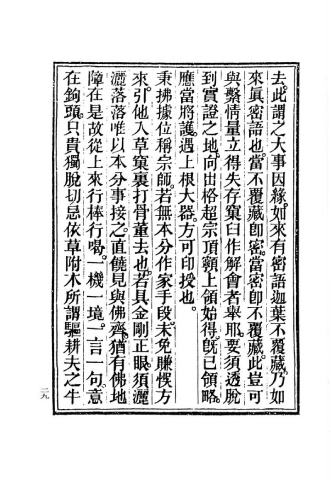 去。此謂之大事因緣。如來有密語。迦葉不覆藏。乃如
來眞密語也。當不覆藏卽密。當密卽不覆藏。此豈可
與繫情量立得失存窠臼作解會者舉耶。要須透脫
到實證之地。向出格超宗頂額上領始得。旣已領略。
應當將護。遇上根大器。方可印授也。
秉拂據位稱宗師。若無本分作家手段。未免賺悞方
來。引他人草窠裏打骨董去也。若具金剛正眼。須灑
灑落落。唯以本分事接之。直饒見與佛齊。猶有佛地
障在。是故從上來行棒行喝。一機一境。一言一句。意
在鉤頭。只貴獨脫。切忌依草附木。所謂驅耕夫之牛
二九